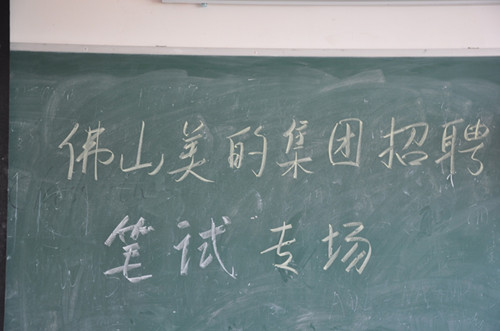 佛山美的集团招聘
笔试专场